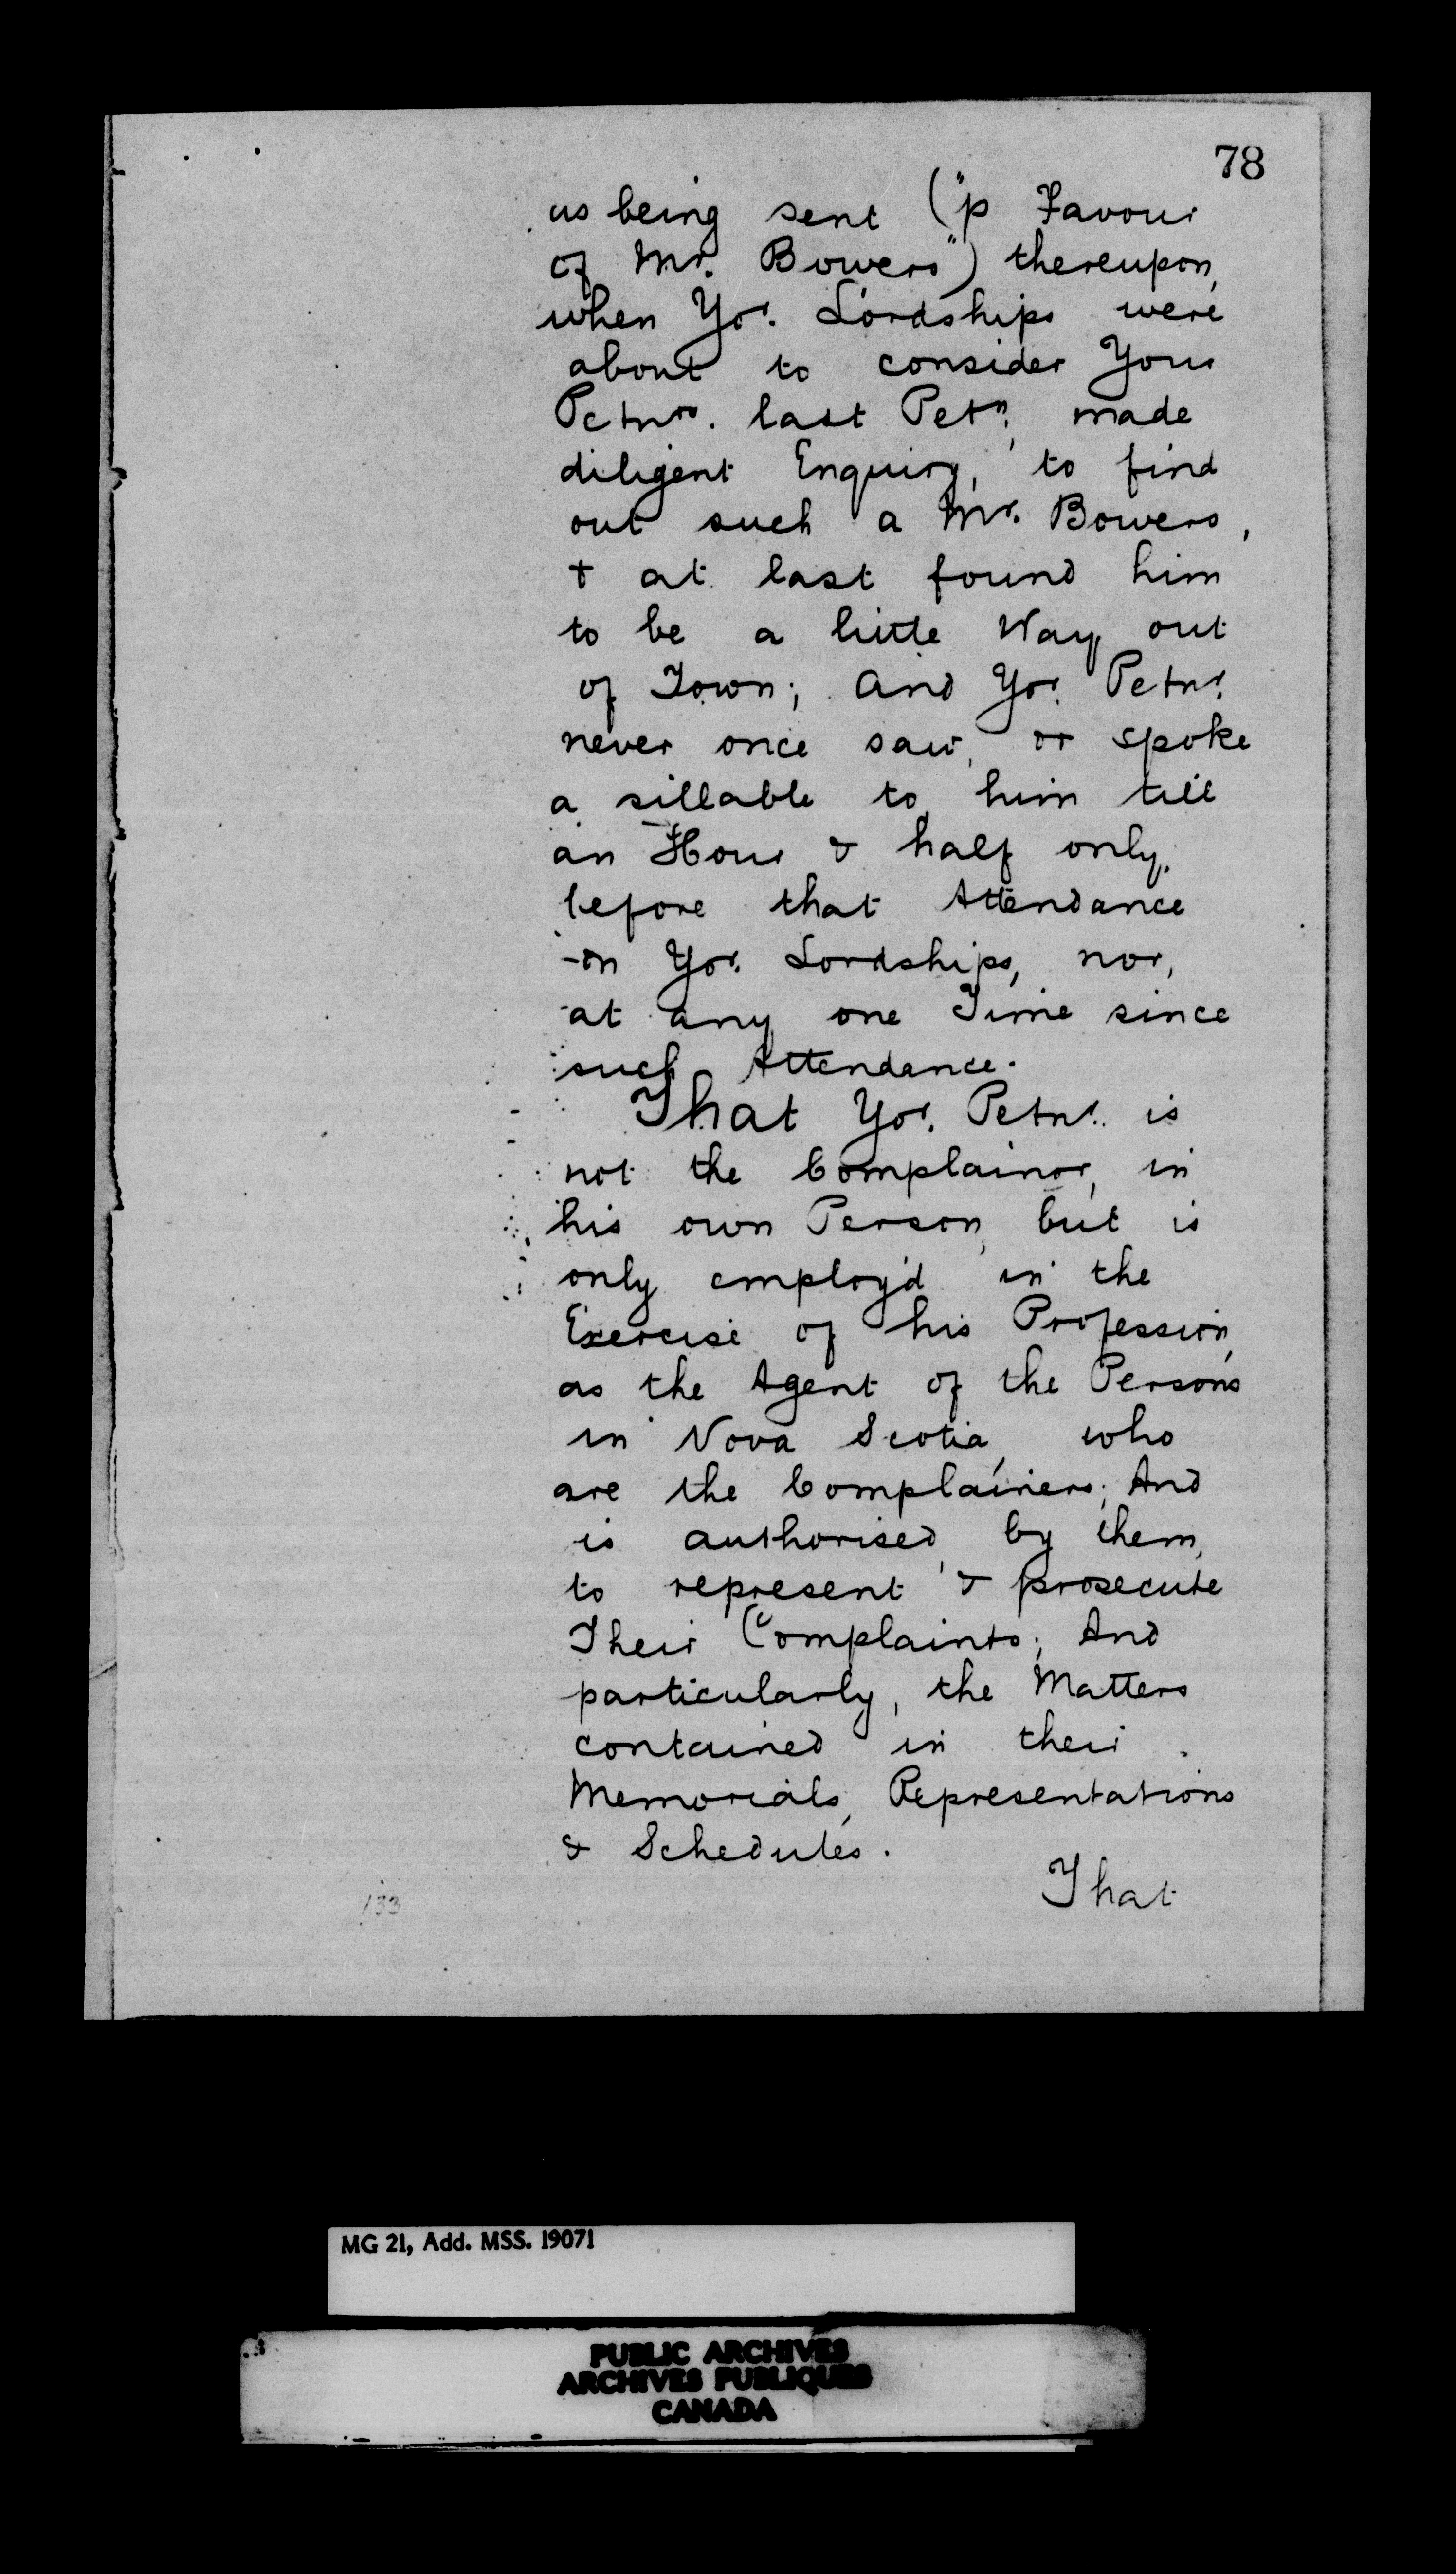 78
as being sent ("p Favour
of Mr. Bowers") thereupon,
when Yor. Lordships were
about to consider Your
Petnrs. last Petn, made
diligent Enquiry, to find
out such a Mr. Bowers,
& at last found him
to be a little Way out
of Town; And Yor. Petnr.
never once saw, or spoke
a sillable to him till
an Hour & half only,
before that Attendance
on Yor. Lordships, nor,
at any one Time since
such Attendance.
That Yor. Petnr. is
not the Complainor, in
his own Person, but is
only employ'd in the
Exercise of his Profession,
as the Agent of the Persons
in Nova Scotia, who
are the Complainers; And
is authorised by them,
to represent & prosecute
Their Complaints; And
particularly, the Matters
contained in their
Memorials, Representations
& Schedules.
That
133
MG 21, Add. MSS. 19071
PUBLIC ARCHIVES
ARCHIVES PUBLIQUES
CANADA